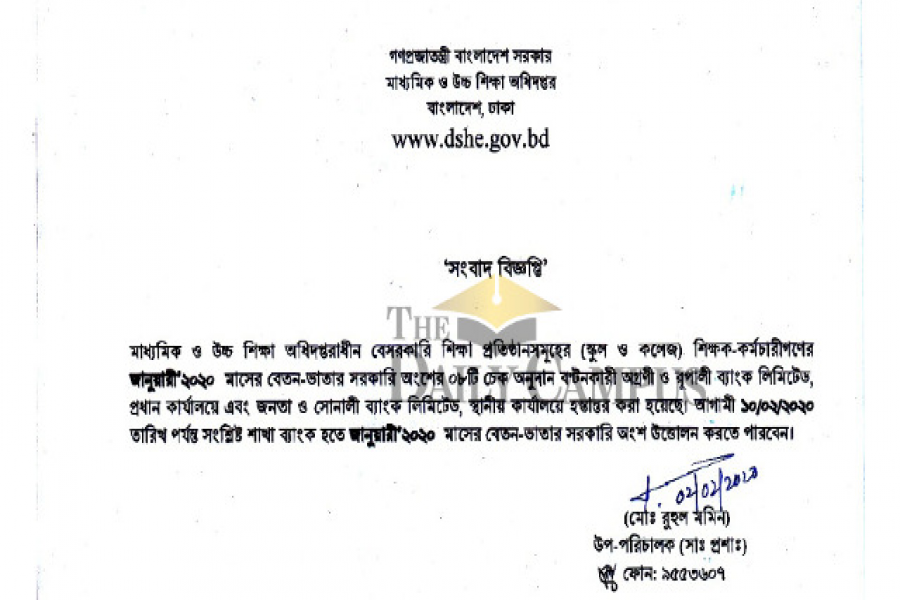 গণপ্রজাতন্ত্রী বাংলাদেশ সরকার
মাধ্যমিক ও উচ্চ শিক্ষা অধিদপ্তর
বাংলাদেশ, ঢাকা
www.dshe.gov.bd
‘সংবাদ বিজ্ঞপ্তি’
THE DAILY CAMPUS
মাধ্যমিক ও উচ্চ শিক্ষা অধিদপ্তরাধীন বেসরকারি শিক্ষা প্রতিষ্ঠানসমূহের (স্কুল ও কলেজ) শিক্ষক-কর্মচারীগণের
জানুয়ারী’২০২০ মাসের বেতন-ভাতার সরকারি অংশের ০৮টি চেক অনুদান বন্টনকারী অগ্রণী ও রূপালী ব্যাংক লিমিটেড,
প্রধান কার্যালয়ে এবং জনতা ও সোনালী ব্যাংক লিমিটেড, স্থানীয় কার্যালয়ে হস্তান্তর করা হয়েছে। আগামী ১০/০২/২০২০
তারিখ পর্যন্ত সংশ্লিষ্ট শাখা ব্যাংক হতে জানুয়ারী’২০২০ মাসের বেতন-ভাতার সরকারি অংশ উত্তোলন করতে পারবেন।
০২/০২/২০২০
(মোঃ রুহুল মমিন)
উপ-পরিচালক (সাঃ প্রশাঃ)
ফোন: ৯৫৫৩৬০৭